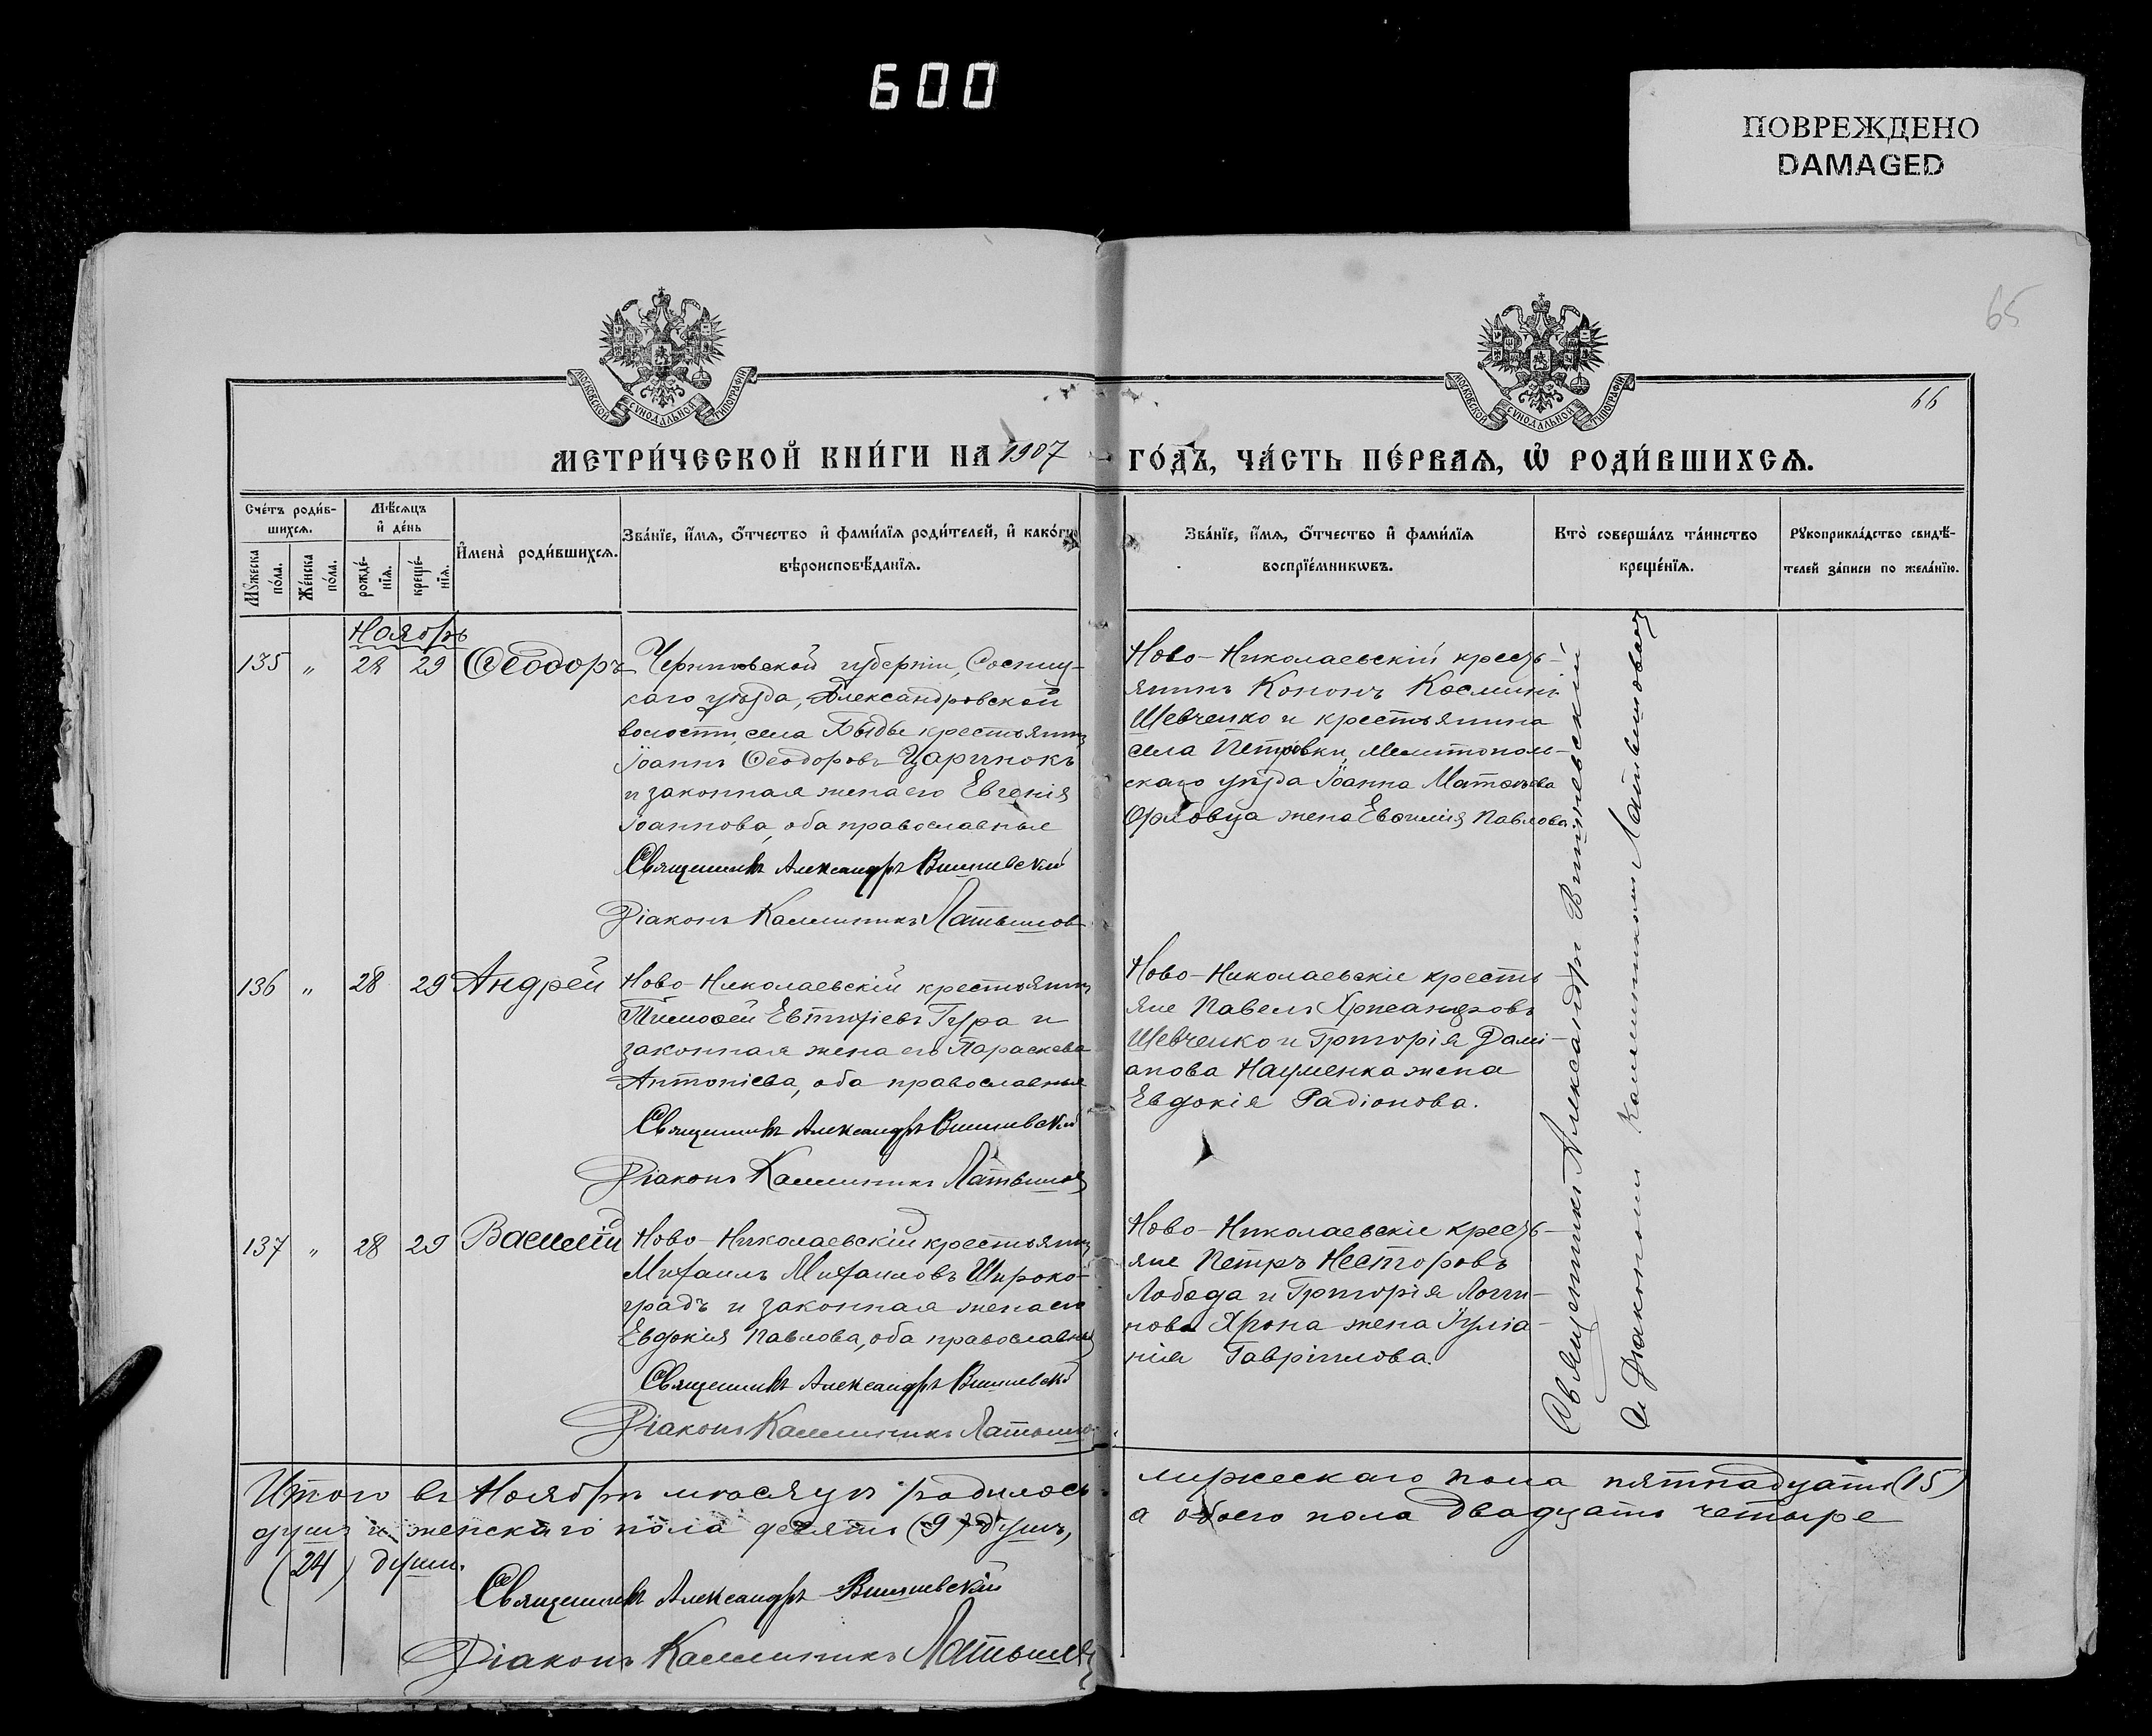 600
ПОВРЕЖДЕНО
DAMAGED
65
МОСКОВСКОЙ СѴНОДАЛЬНОЙ ТИПОГРАФІИ
МОСКОВСКОЙ СѴНОДАЛЬНОЙ ТИПОГРАФІИ
66
МЕТРИ́ЧЕСКОЙ КНИ́ГИ НА 1907 ГО́ДЪ, ЧА́СТЬ ПЕ́РВАѦ, Ѡ РОДИ́ВШИХСѦ.
Сче́тъ роди́в-
шихсѧ.
Мꙋжеска по́ла.
Же́нска по́ла.
Мѣ́сѧцъ
и҆ де́нь
рожде́-
нїѧ.
креще́-
нїѧ.
И҆мена̀ роди́вшихсѧ.
Зва́нїе, и҆́мѧ, ѻ҆́тчество и҆ фами́лїѧ роди́телей, и҆ како́гѡ
вѣроисповѣ́данїѧ.
Зва́нїе, и҆́мѧ, ѻ҆́тчество и҆ фами́лїѧ
воспрїе́мникѡвъ.
Кто̀ соверша́лъ та́инство
креще́нїѧ.
Рꙋкоприкла́дство свидѣ́-
телей за́писи по жела́нїю.
Ноябрь
135 " 28 29 Ѳеодоръ
Черниговской губерніи, Сосниц-
каго уѣзда, Александровской
волости, села Быды крестьянинъ
Іоаннъ Ѳеодоровъ Царинокъ
и законная жена его Евгенія
Іоаннова, оба православные
Священникъ Александръ Вишневскій
Діаконъ Каллиникъ Латышов
Ново-Николаевскій кресть-
янинъ Кононъ Косминъ
Шевченко и крестьянина
села Петровки, Мелитополь-
скаго уѣзда Іоанна Матѳѣева
Орловца жена Евѳимія Павлова.
136 " 28 29 Андрей
Ново-Николаевскій крестьянинъ
Тимоѳей Евтихіевъ Гура и
законная жена его Параскева
Антоніева, оба православные
Священникъ Александръ Вишневскій
Діаконъ Каллиникъ Латышов
Ново-Николаевскіе кресть
яне Павелъ
Шевченко и Григорія Дамі-
анова Науменка жена
Евдокія Радіонова.
137 " 28 29 Василій
Ново-Николаевскій крестьянинъ
Михаилъ Михаиловъ Широко-
градъ и законная жена его
Евдокія Павлова, оба православные
Священникъ Александръ Вишневскій
Діаконъ Каллиникъ Латышов
Ново-Николаевскіе кресть-
яне Петръ Несторовъ
Лобода и Григорія Логи-
нова Хрона жена Іуліа-
нія Гавріилова.
Священникъ Александръ Вишневскій
и Діакономъ Каллиникомъ Латышовымъ
Итого въ Ноябрѣ мѣсяцѣ родилось мужескаго пола пятнадцать (15)
душъ и женскаго пола девять (9) душъ, а обоего пола двадцать четыре
(24) души.
Священникъ Александръ Вишневскій
Діаконъ Каллиникъ Латышов